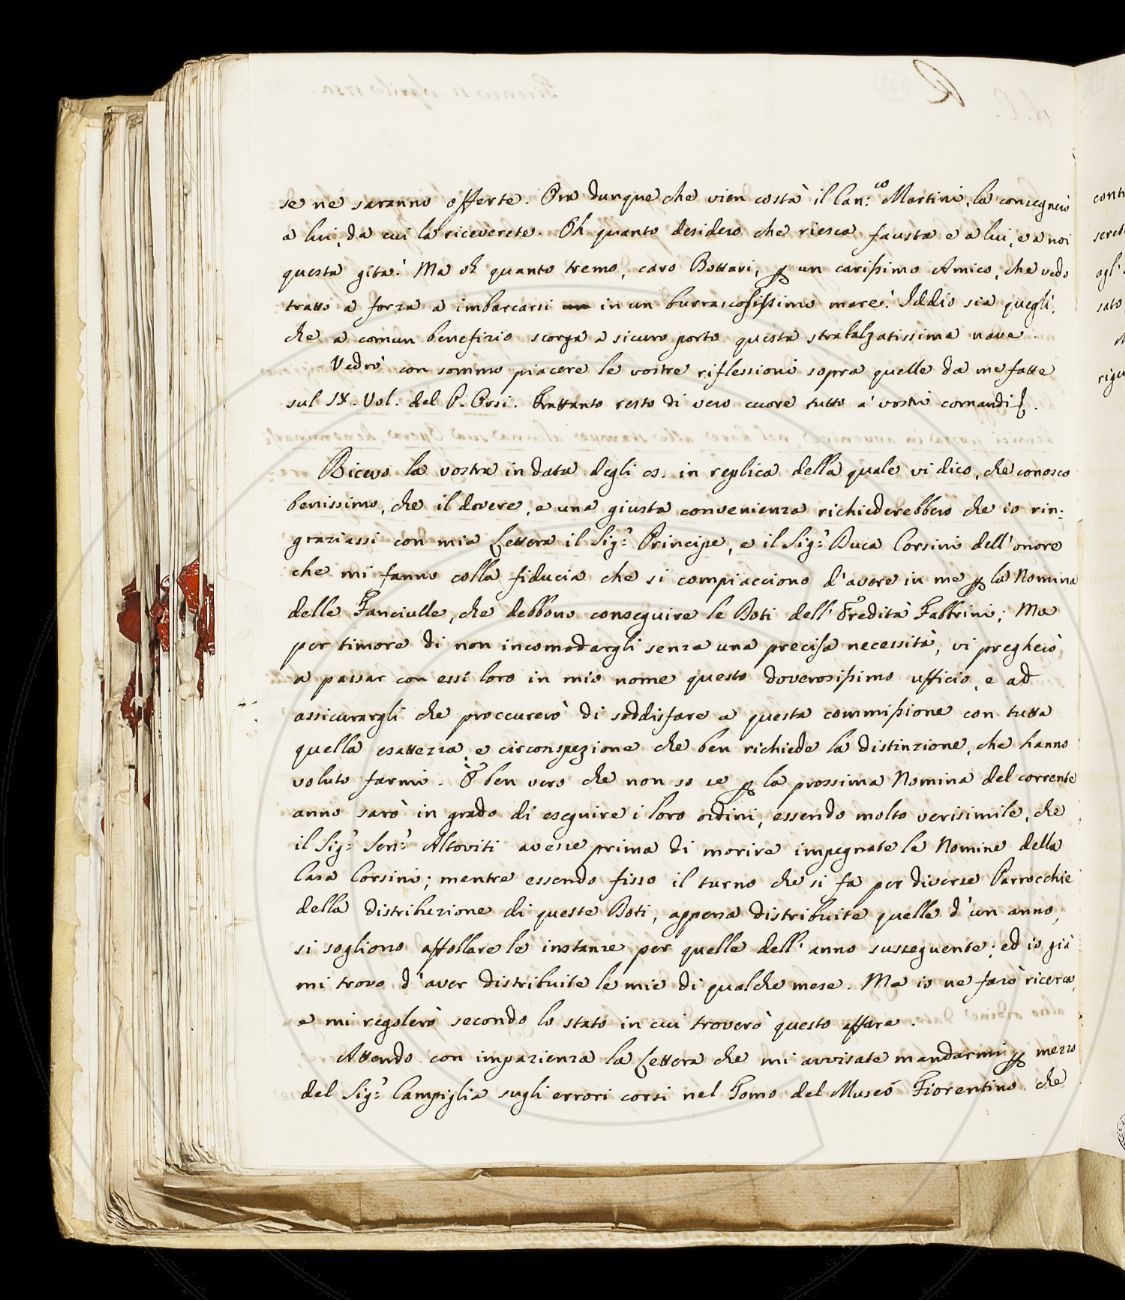 se ne saranno offerte. Ora dunque che vien costà il Can:co Martini, la consegnerò
a lui, da cui la riceverete. Oh quanto desidero che riesca fausta e a lui, e a noi
questa gita! Ma oh quanto tremo, caro Bottari, p un carissimo Amico, che vedo
tratto a forza a imbarcarsi in un burrascosissimo mare! Iddio sia quegli,
che a comun benefizio scorga a sicuro porto questa strabalzatissima nave.
Vedrò con sommo piacere le vostre riflessioni sopra quelle da me fatte
sul IX. Vol. del P. Orsi. Frattanto resto di vero cuore tutto a' vostri comandi
Ricevo la vostra in data degli 8. in replica della quale vi dico, che conosco
benissimo, che il dovere, e una giusta convenienza richiederebbero che io rin-
graziassi con mia Lettera il Sig:r Principe, e il Sig:r Duca Corsini dell'onore
che mi fanno colla fiducia che si compiacciono d'avere in me p la Nomina
delle Fanciulle, che debbono conseguire le Doti dell'Eredità Fabbrini; Ma
per timore di non incomodargli senza una precisa necessità, vi pregherò
a passar con essi loro in mio nome questo doverosissimo ufficio, e ad
assicurargli che proccurerò di soddisfare a questa commissione con tutta
quella esattezza, e circonspezione che ben richiede la distinzione, che hanno
voluto farmi. È ben vero che non so se p la prossima Nomina del corrente
anno sarò in grado di eseguire i loro ordini, essendo molto verisimile, che
il Sig:r Sen:r Altoviti avesse prima di morire impegnate le Nomine della
Casa Corsini; mentre essendo fisso il turno che si fa per diverse Parrocchie
della distribuzione di queste Doti, appena distribuite quelle d'un anno,
si sogliono affollare le instanze per quelle dell'anno susseguente; ed io già
mi trovo d'aver distribuite le mie di qualche mese. Ma io ne farò ricerca,
e mi regolerò secondo lo stato in cui troverò questo affare.
Attendo con impazienza la Lettera che mi avvisate mandarmi p mezzo
del Sig:r Campiglia sugli errori corsi nel Tomo del Museo Fiorentino che